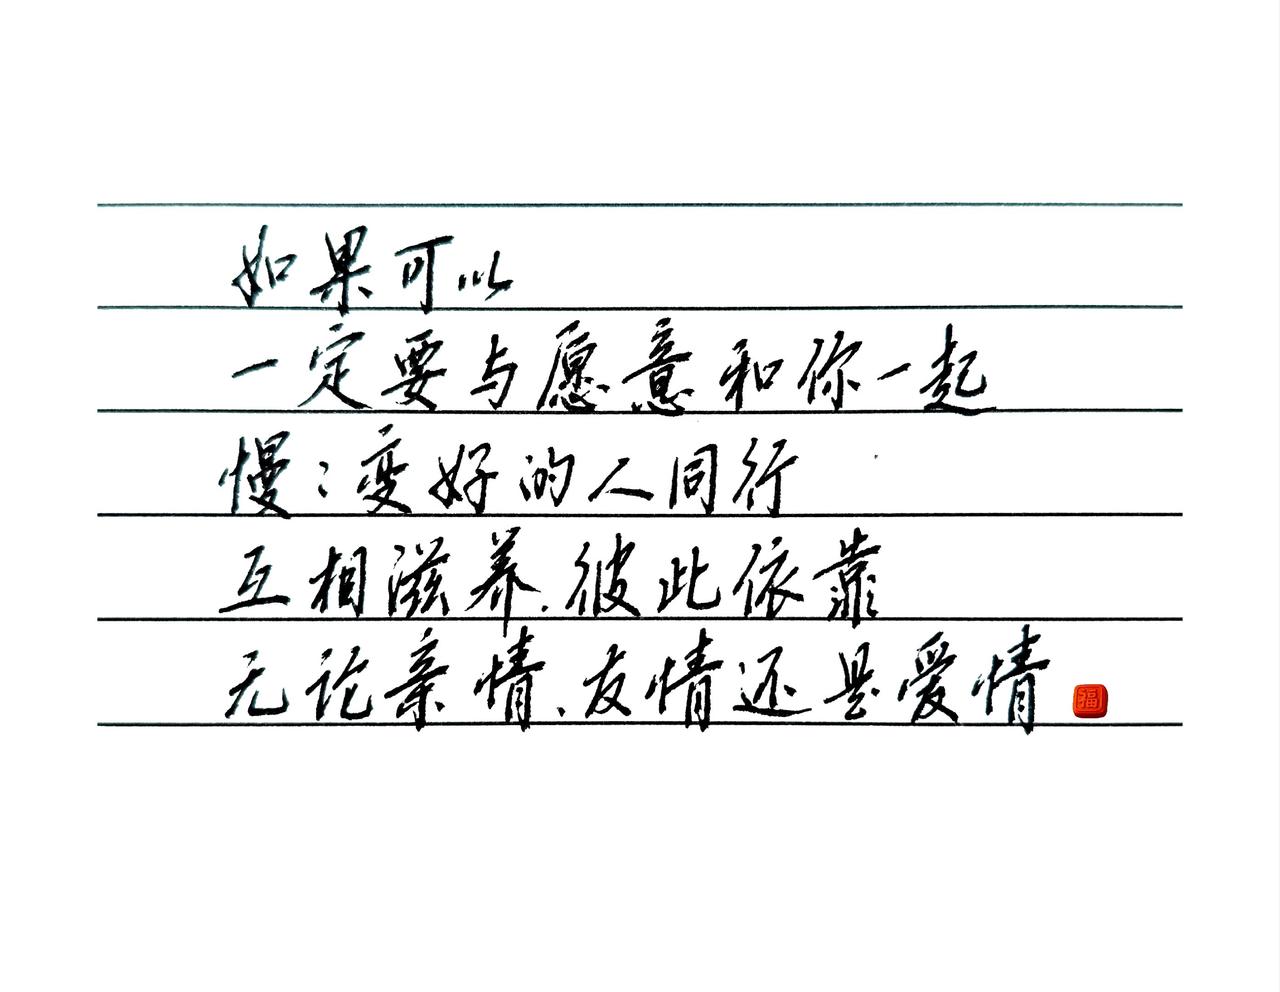 如果可以
一定要与愿意和你一起
慢:变好的人同行
互相滋养.彼此依靠
无论亲情.友情还是爱情
福